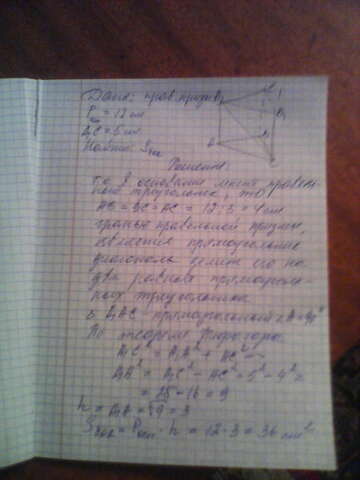 Дано: прав. призма
Pосн = 12 см
A₁C = 5 см
Найти: Sбок
Решение:
т.к. в основании лежит правиль-
ный треугольник, то
AB = BC = AC = 12 : 3 = 4 см
гранью правильной призмы,
является прямоугольник
диагональ делит его на
два равных прямоуголь-
ных треугольника
A₁AC - прямоугольный
По теореме Пифагора
A₁C² = A₁A² + AC²
AA₁² = A₁C² - AC² = 5² - 4² =
= 25 - 16 = 9
h = A₁A = √9 = 3
Sбок = Pосн · h = 12 · 3 = 36 см²